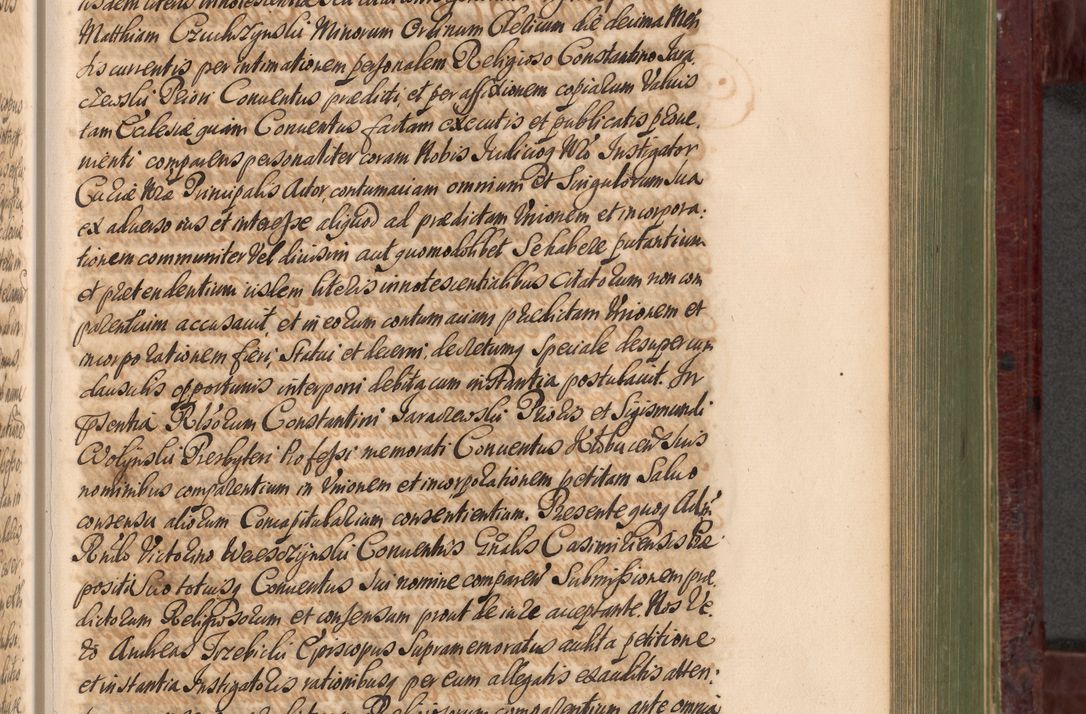 Matthiam Czuchszynski Minorum Ordinum Clericum die decima Men
sis currentis per intimationem personalem Religioso Constantino Jura
czewski Priori Conuentus prædicti, et per affixionem copiarum Valuis
tam Ecclesiæ quam Conuentus factam executis et publicatis proue.
nienti comparens personaliter coram Nobis Judicioq Nro Instigator
Curiæ Nræ Principalis Actor, contumaciam omnium et Singulorum sua
ex aduerso ius et interesse aliquod ad prædictam Vnionem et incorpora:
tionem communiter Vel diuisim aut quomodolibet Se habere putantium
et prætendentium iisdem literis innotescentialibus Citatorum non com
parentium accusauit, et in eorum contumaciam prædictam Vnionem et
incorporationem fieri, Statui et decerni, decretumq Speciale desuper cum
clausulis opportunis interponi debita cum instantia postulauit. In
pñtia Rlsorum Constantini Jaraczewski Prioris et Sigismundi
Wolynski Presbyteri Professi memorati Conuentus Kłobucen Suis
nominibus comparentium in Vnionem et incorporationem petitam Saluo
consensu aliorum Concapitularium consentientium. Præsente quoq Adm
Rndo Victorino Wereszczynski Conuentus Gñalis Casimiriensis Præ
posito Suo totiusq Conuentus Sui nomine comparen Submissionem præ
dictorum Religiosorum et consensum prout de iure acceptante. Nos Ve
ro Andreas Trzebicki Episcopus Supramemoratus audita petitione
et instantia Instigatoris rationibusq per eum allegatis exauditis atten: